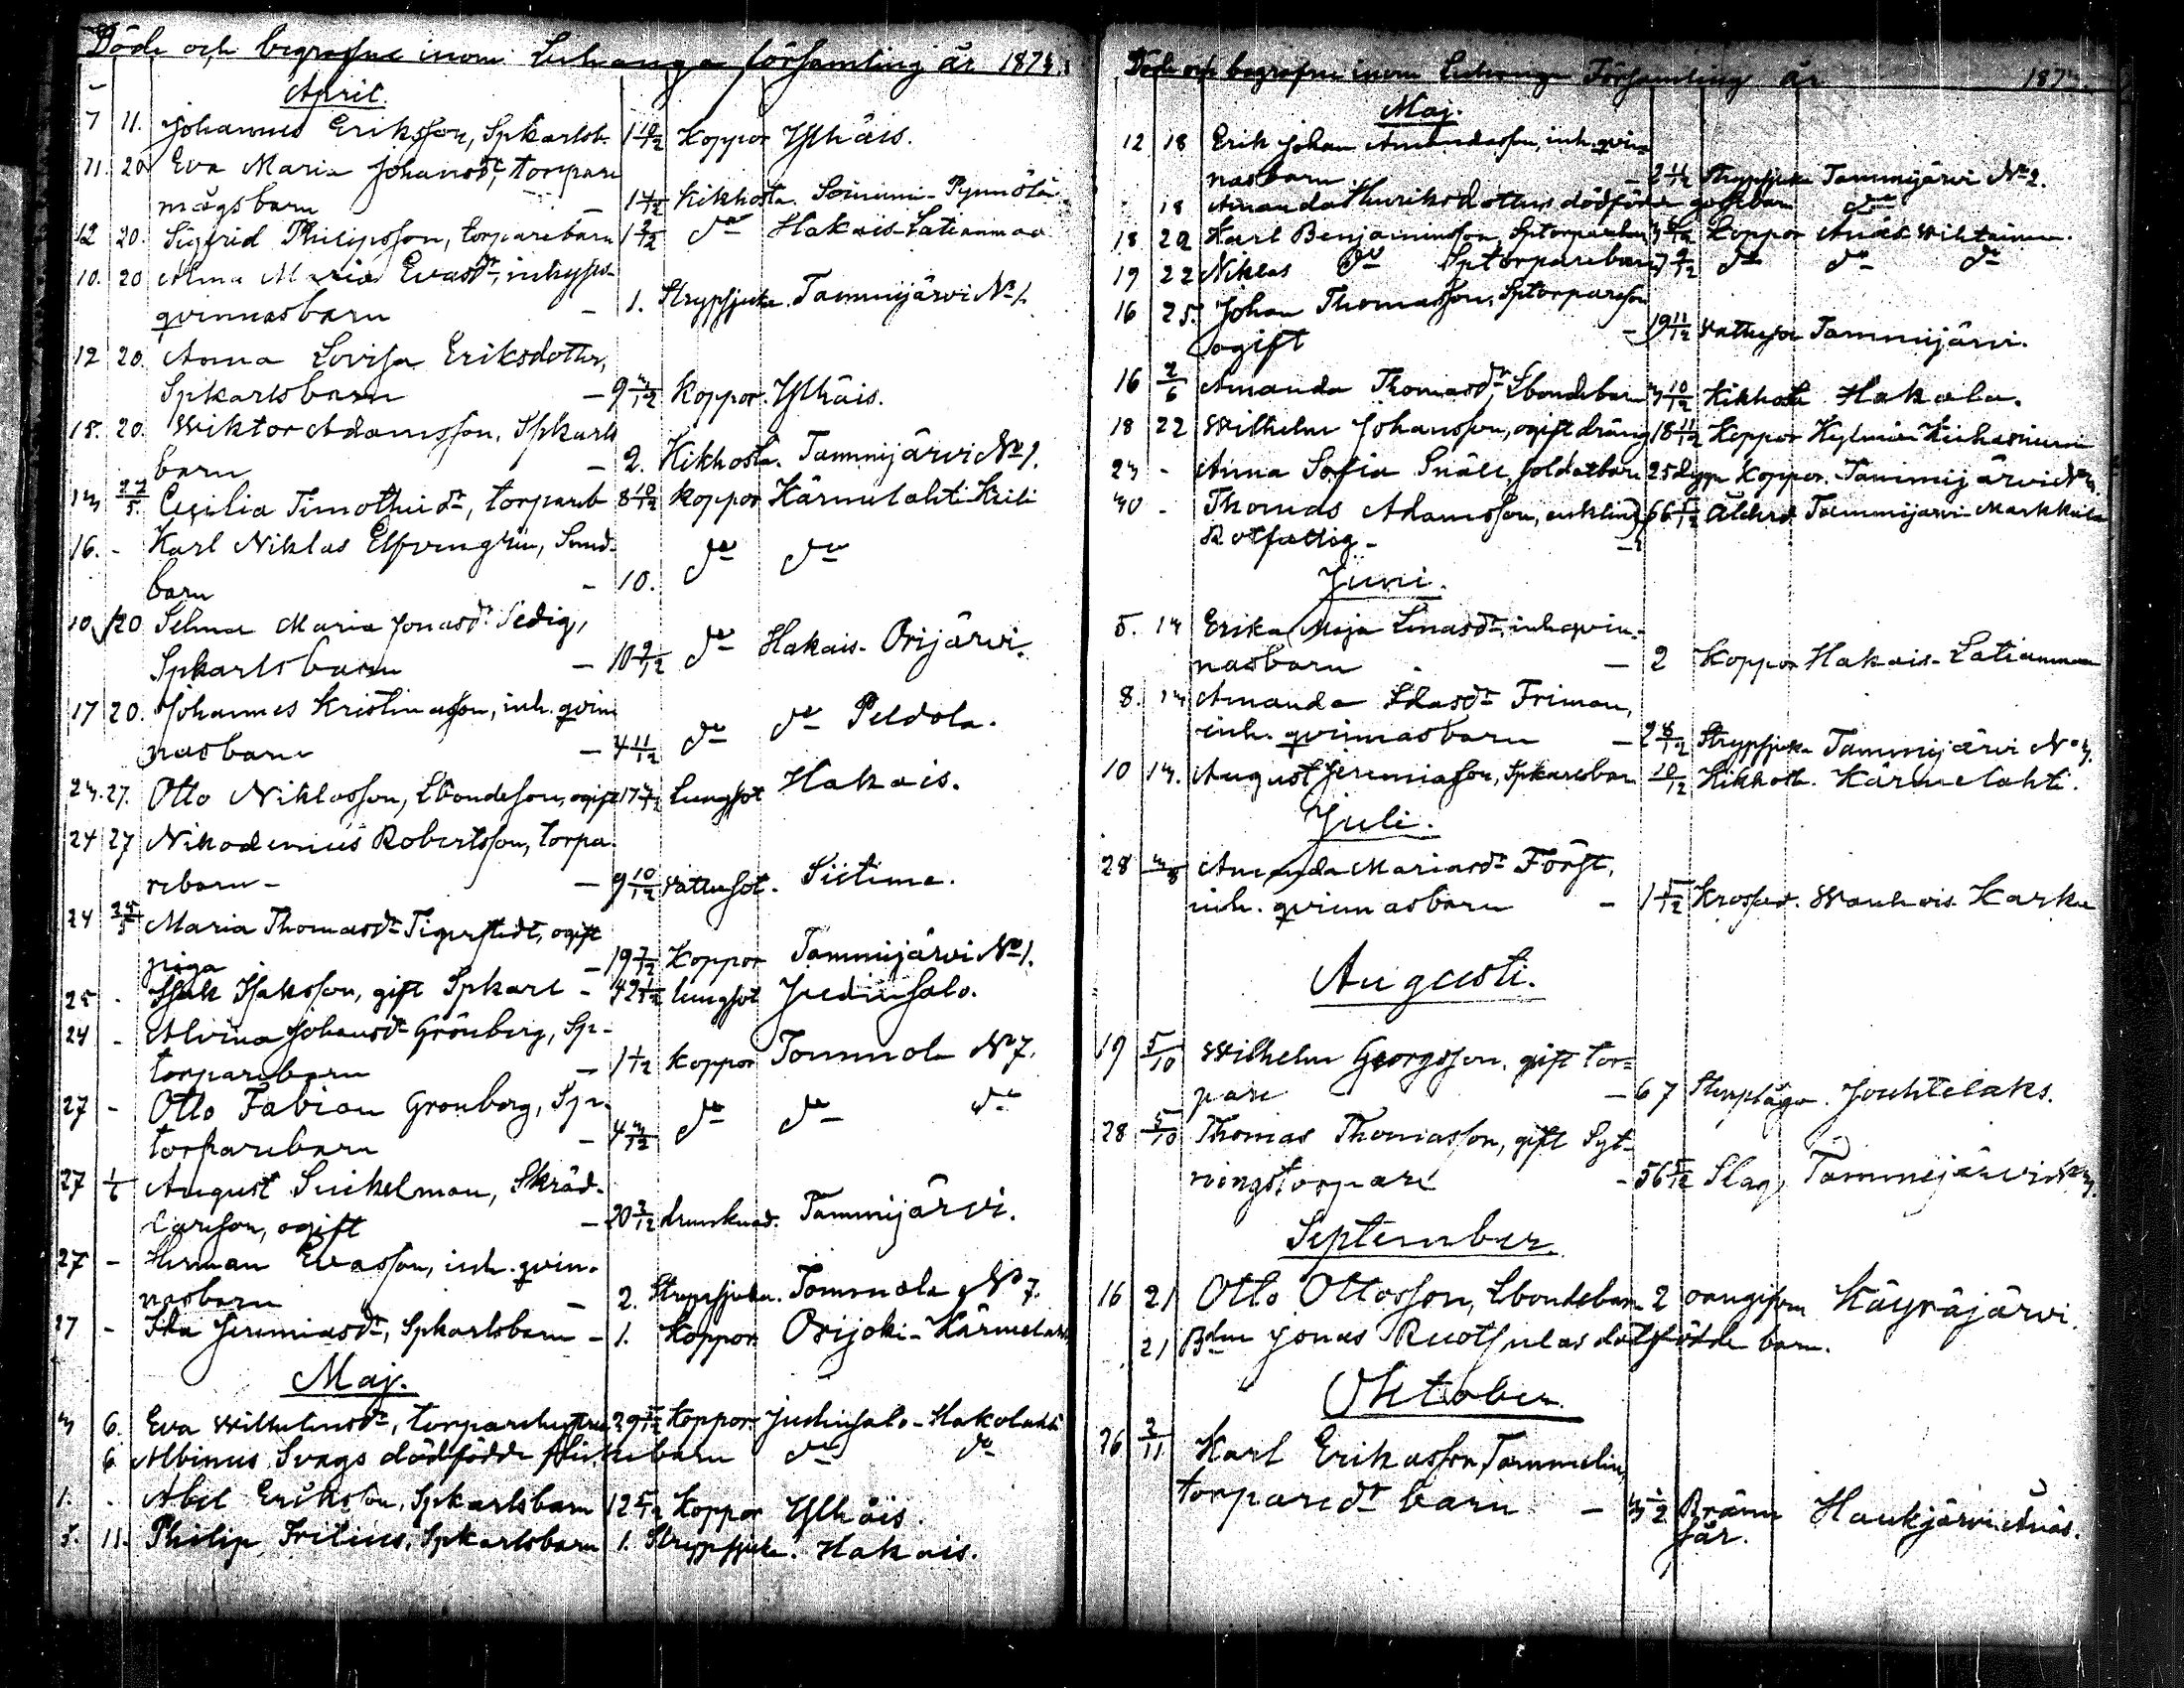 Döde och begrafne inom Luhanga församling år 187
April.
7 11. Johannes Eriksson, Spkarlsb. 1 10/12 Koppor Ylhäis.
11. 20 Eva Maria Johansdr, torpare
mågsbarn – Kikhosta. Soinimi-Pynnölä
12 20. Sigfrid Philipsson, torparebarn do Hakais-Latianmaa
10. 20 Alma Maria Evasdr, inhyses
qvinnasbarn – 1. Strypsjuka. Tammijärvi No 1.
12 20. Anna Lovisa Eriksdotter,
Spkarlsbarn – 9 3/12 Koppor. Ylhäis.
15. 20. Wiktor Adamsson, Spkarls
barn – 2. Kikhosta. Tammijärvi No 1.
13 22/5 Cecilia Timotheidr, torpareb 8 10/12 Koppor Kärmelahti Keili
16. - Karl Niklas Elfvengrén, Smed
barn – 10. do do
10 20 Selma Maria Jonasdr Sedig,
Spkarlsbarn – 10 9/12 do Hakais-Orijärvi.
17 20. Johannes Kristinasson, inh. qvin
nasbarn – 4 11/12 do do Peldola.
23. 27. Otto Niklasson, Lbondeson, ogift 17 Lungsot Hakais.
24 27 Nikodemus Robertsson, torpa
rebarn – 9 10/12 Vattusot. Siitima.
24 Maria Thomasdr Tigerstedt, ogift
piga – 19 7/12 Koppor Tammijärvi No 1.
25 - Isak Isaksson, gift Spkarl – 42 1/12 lungsot Judinsalo.
24 - Alvina Johansdr Grönberg, Sp-
torparebarn – 1 1/12 Koppor Tommola No 7.
27 - Otto Fabian Gronberg, Sp-
torparebarn – 4 3/12 do do do
27 August Suikelman, Skräd-
dareson, ogift – 20 3/12 drunknad. Tammijärvi.
27 - Herman Evasson, inh. qvin-
nasbarn – 2. Strypsjuka. Tommola No 7.
27 - Ida Jeremiasdr, Spkarlsbarn – 1. Koppor Orijoki-Kärmelaht
Maj.
3 6. Eva Wilhelmsdr, torparehustru 29 Koppor Judinsalo-Hakolahti
6 Albinus Svags dödfödde flickebarn do do
1. - Abel Eriksson, Spkarlsbarn 12 5/12 Koppor Ylhäis.
5. 11. Philip Fritius, Spkarlsbarn 1. Strypsjuka. Hakais.
Döde och begrafne inom Luhanga Församling år 187
Maj.
12 18 Erik Johan Amandasson, inh. qvin-
nasbarn – 2 11/12 Strypsjuka Tammijärvi No 2.
18 Amanda Henriksdotters dödfödde gossebarn do
18 22 Karl Benjaminsson, Sptorparebarn Koppor Anäs Wihtainen.
19 22 Niklas do Sptorparebarn 7 2/12 do do do
16 25. Johan Thomasson, Sptorpareson
ogift – 19 11/12 Vattusot Tammijärvi.
16 2/6 Amanda Thomasdr, Lbondebarn 3 10/12 Kikhosta Hakala.
18 22 Wilhelm Johansson, ogift dräng 18 11/12 Koppor
23 - Anna Sofia Snäll, soldatbarn 25 dygn Koppor. Tammijärvi No 3.
30 - Thomas Adamsson, enkling 66 5/12 Ålderd. Tammijärvi Markkula
Rotfattig –
Juni.
5. 14 Erika Maja Linasdr, inh qvin-
nasbarn – 2 Koppor Hakais-Latianmaa
8. 14 Amanda Idasdr Friman,
inh. qvinnasbarn – 2 8/12 Strypsjuka Tammijärvi No 3.
10 14. August Jeremiasson, Spkarlsbarn 10/12 Kikhosta. Kärmelahti.
Juli.
28 3/8 Amanda Mariasdr Först,
inh. qvinnasbarn – 1 5/12 Krossad. Wanhais Karku
Augusti.
19 5/10 Wilhelm Georgsson, gift tor-
pare – 67 Jouhtelaks.
28 5/10 Thomas Thomasson, gift Syt-
ningstorpare – 56 5/12 Slag, Tammijärvi No 3.
September.
16 21 Otto Ottosson, Lbondebarn 2 oangifven Käyräjärvi.
21 Bdn Jonas Ruotsulas dödfödde barn.
Oktober.
26 2/11 Karl Erikasson Tammelin,
torparedr barn – 3 1/2 Bränn Haukjärvi Anäs.
sår.